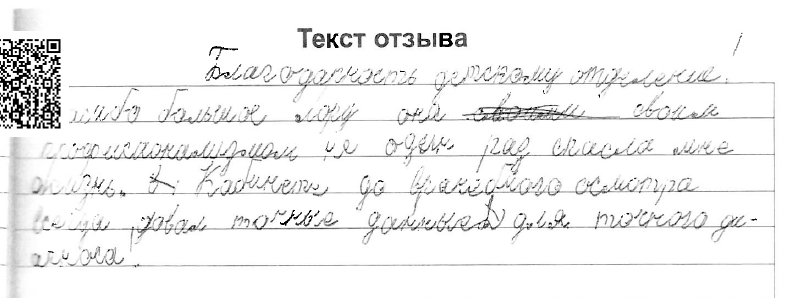 Текст отзыва
Благодарность детскому отделению.
большое лору она своим
професионализмом не один раз спасла мне
жизнь. Кабинет до врачебного осмотра
всегда давал точные данные для точного ди-
агноса.